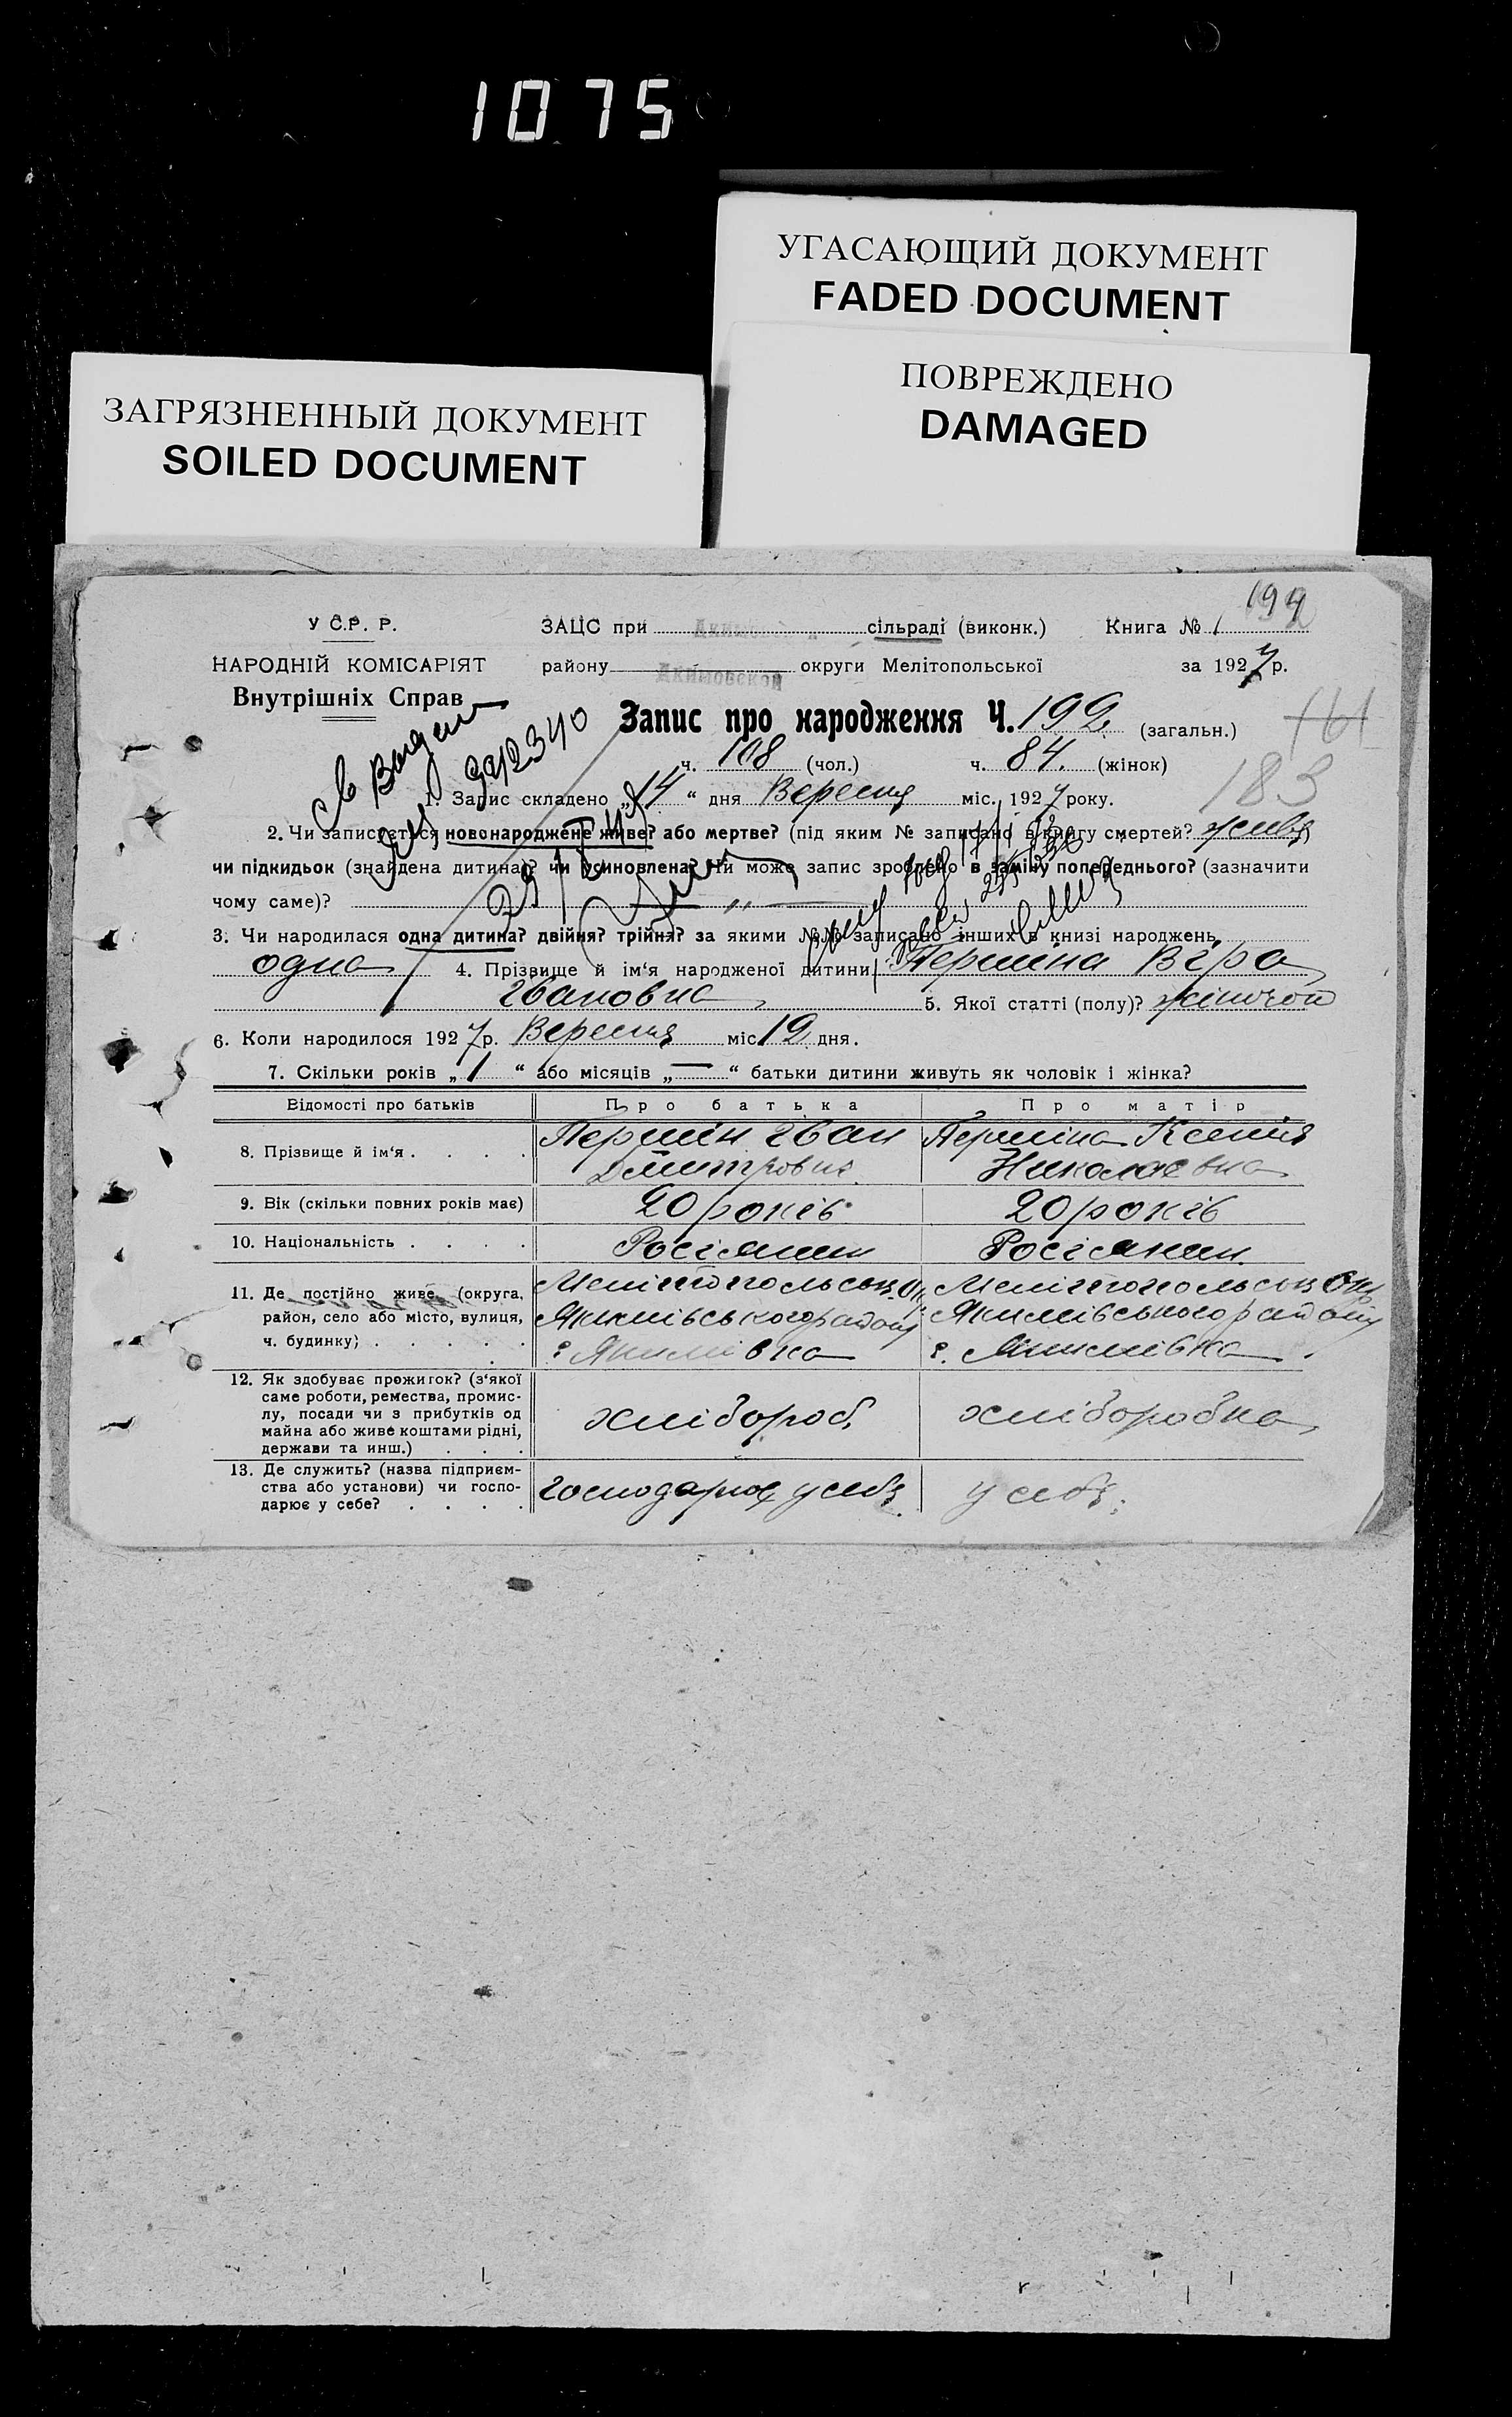 1075
УГАСАЮЩИЙ ДОКУМЕНТ
FADED DOCUMENT
ПОВРЕЖДЕНО
DAMAGED
ЗАГРЯЗНЕННЫЙ ДОКУМЕНТ
SOILED DOCUMENT
У С.Р. Р. ЗАЦС при сільраді (виконк.) Книга № 1
НАРОДНІЙ КОМІСАРІЯТ району Акимовской округи Мелітопольської за 1927 р.
Внутрішніх Справ
Запис про народження Ч. 192. (загальн.)
161
ч. 108 (чол.) ч. 84. (жінок)
183
1. Запис складено „14“ дня Вересня міс. 1927 року.
2. Чи записується новонароджене живе? або мертве? (під яким № записано в книгу смертей? живе)
чи підкидьок (знайдена дитина)? чи усиновлена? Чи може запис зроблено в заміну попереднього? (зазначити
чому саме)? — „ —
3. Чи народилася одна дитина? двійня? трійня? за якими №№ записано інших в книзі народжень
одна 4. Прізвище й ім‘я народженої дитини Першіна Віра
Івановна 5. Якої статті (полу)? жіночой
6. Коли народилося 1927 р. Вересня міс 12 дня.
7. Скільки років „ 1 “ або місяців „—“ батьки дитини живуть як чоловік і жінка?
Відомості про батьків Про батька Про матір
8. Прізвище й ім‘я . . . . Першін Іван Першіна Ксенія
Дмитрович Николаевна
9. Вік (скільки повних років має) 20 років 20 років
10. Національність . . . . Росіянин Росіянин.
11. Де постійно живе (округа, Мелітопольськ. Ок. Мелітопольськ Ок.
район, село або місто, вулиця, Якимівського району Якимівського району
ч. будинку) . . . . . с. Якимівка с. Якимівка
12. Як здобуває прожиток? (з‘якої
саме роботи, ремества, промис-
лу, посади чи з прибутків од хлібороб. хліборобка
майна або живе коштами рідні,
держави та инш.) . . .
13. Де служить? (назва підприєм-
ства або установи) чи госпо- господарює у себе. у себе.
дарює у себе? . . . .